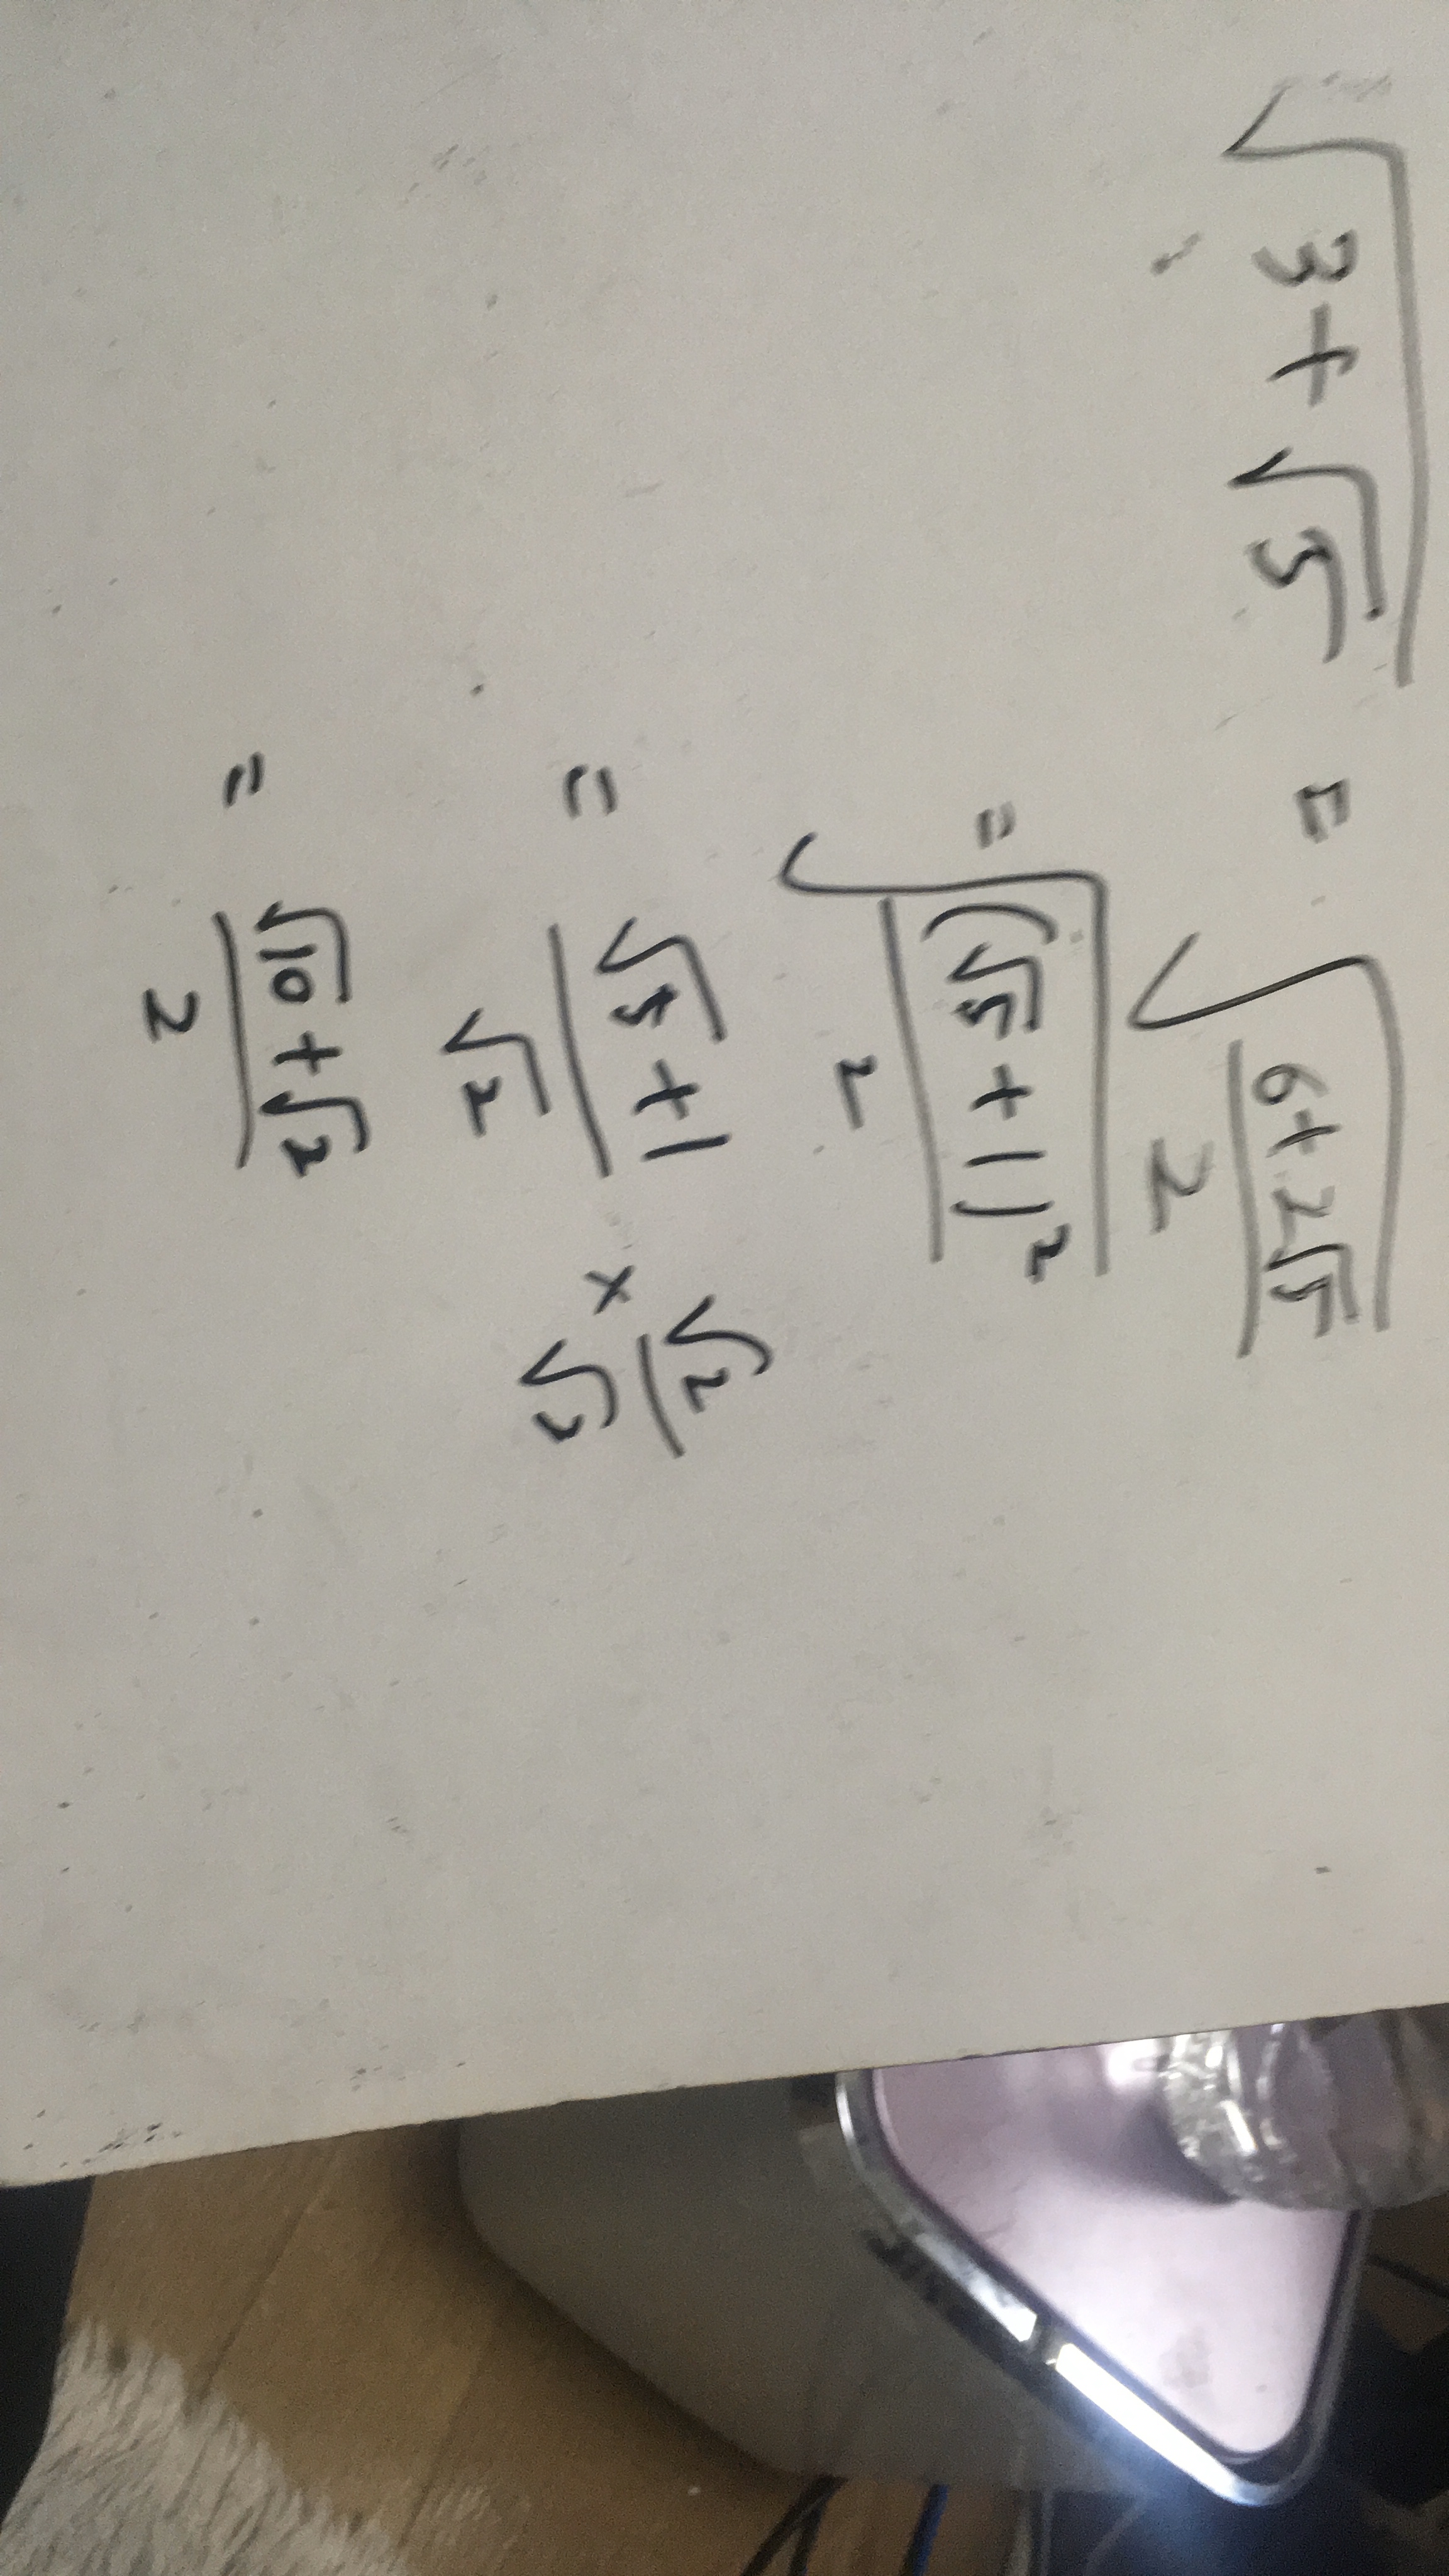 √(3+√5) = √((6+2√5)/2)
= √((√5+1)²/2)
= (√5+1)/√2 × √2/√2
= (√10+√2)/2